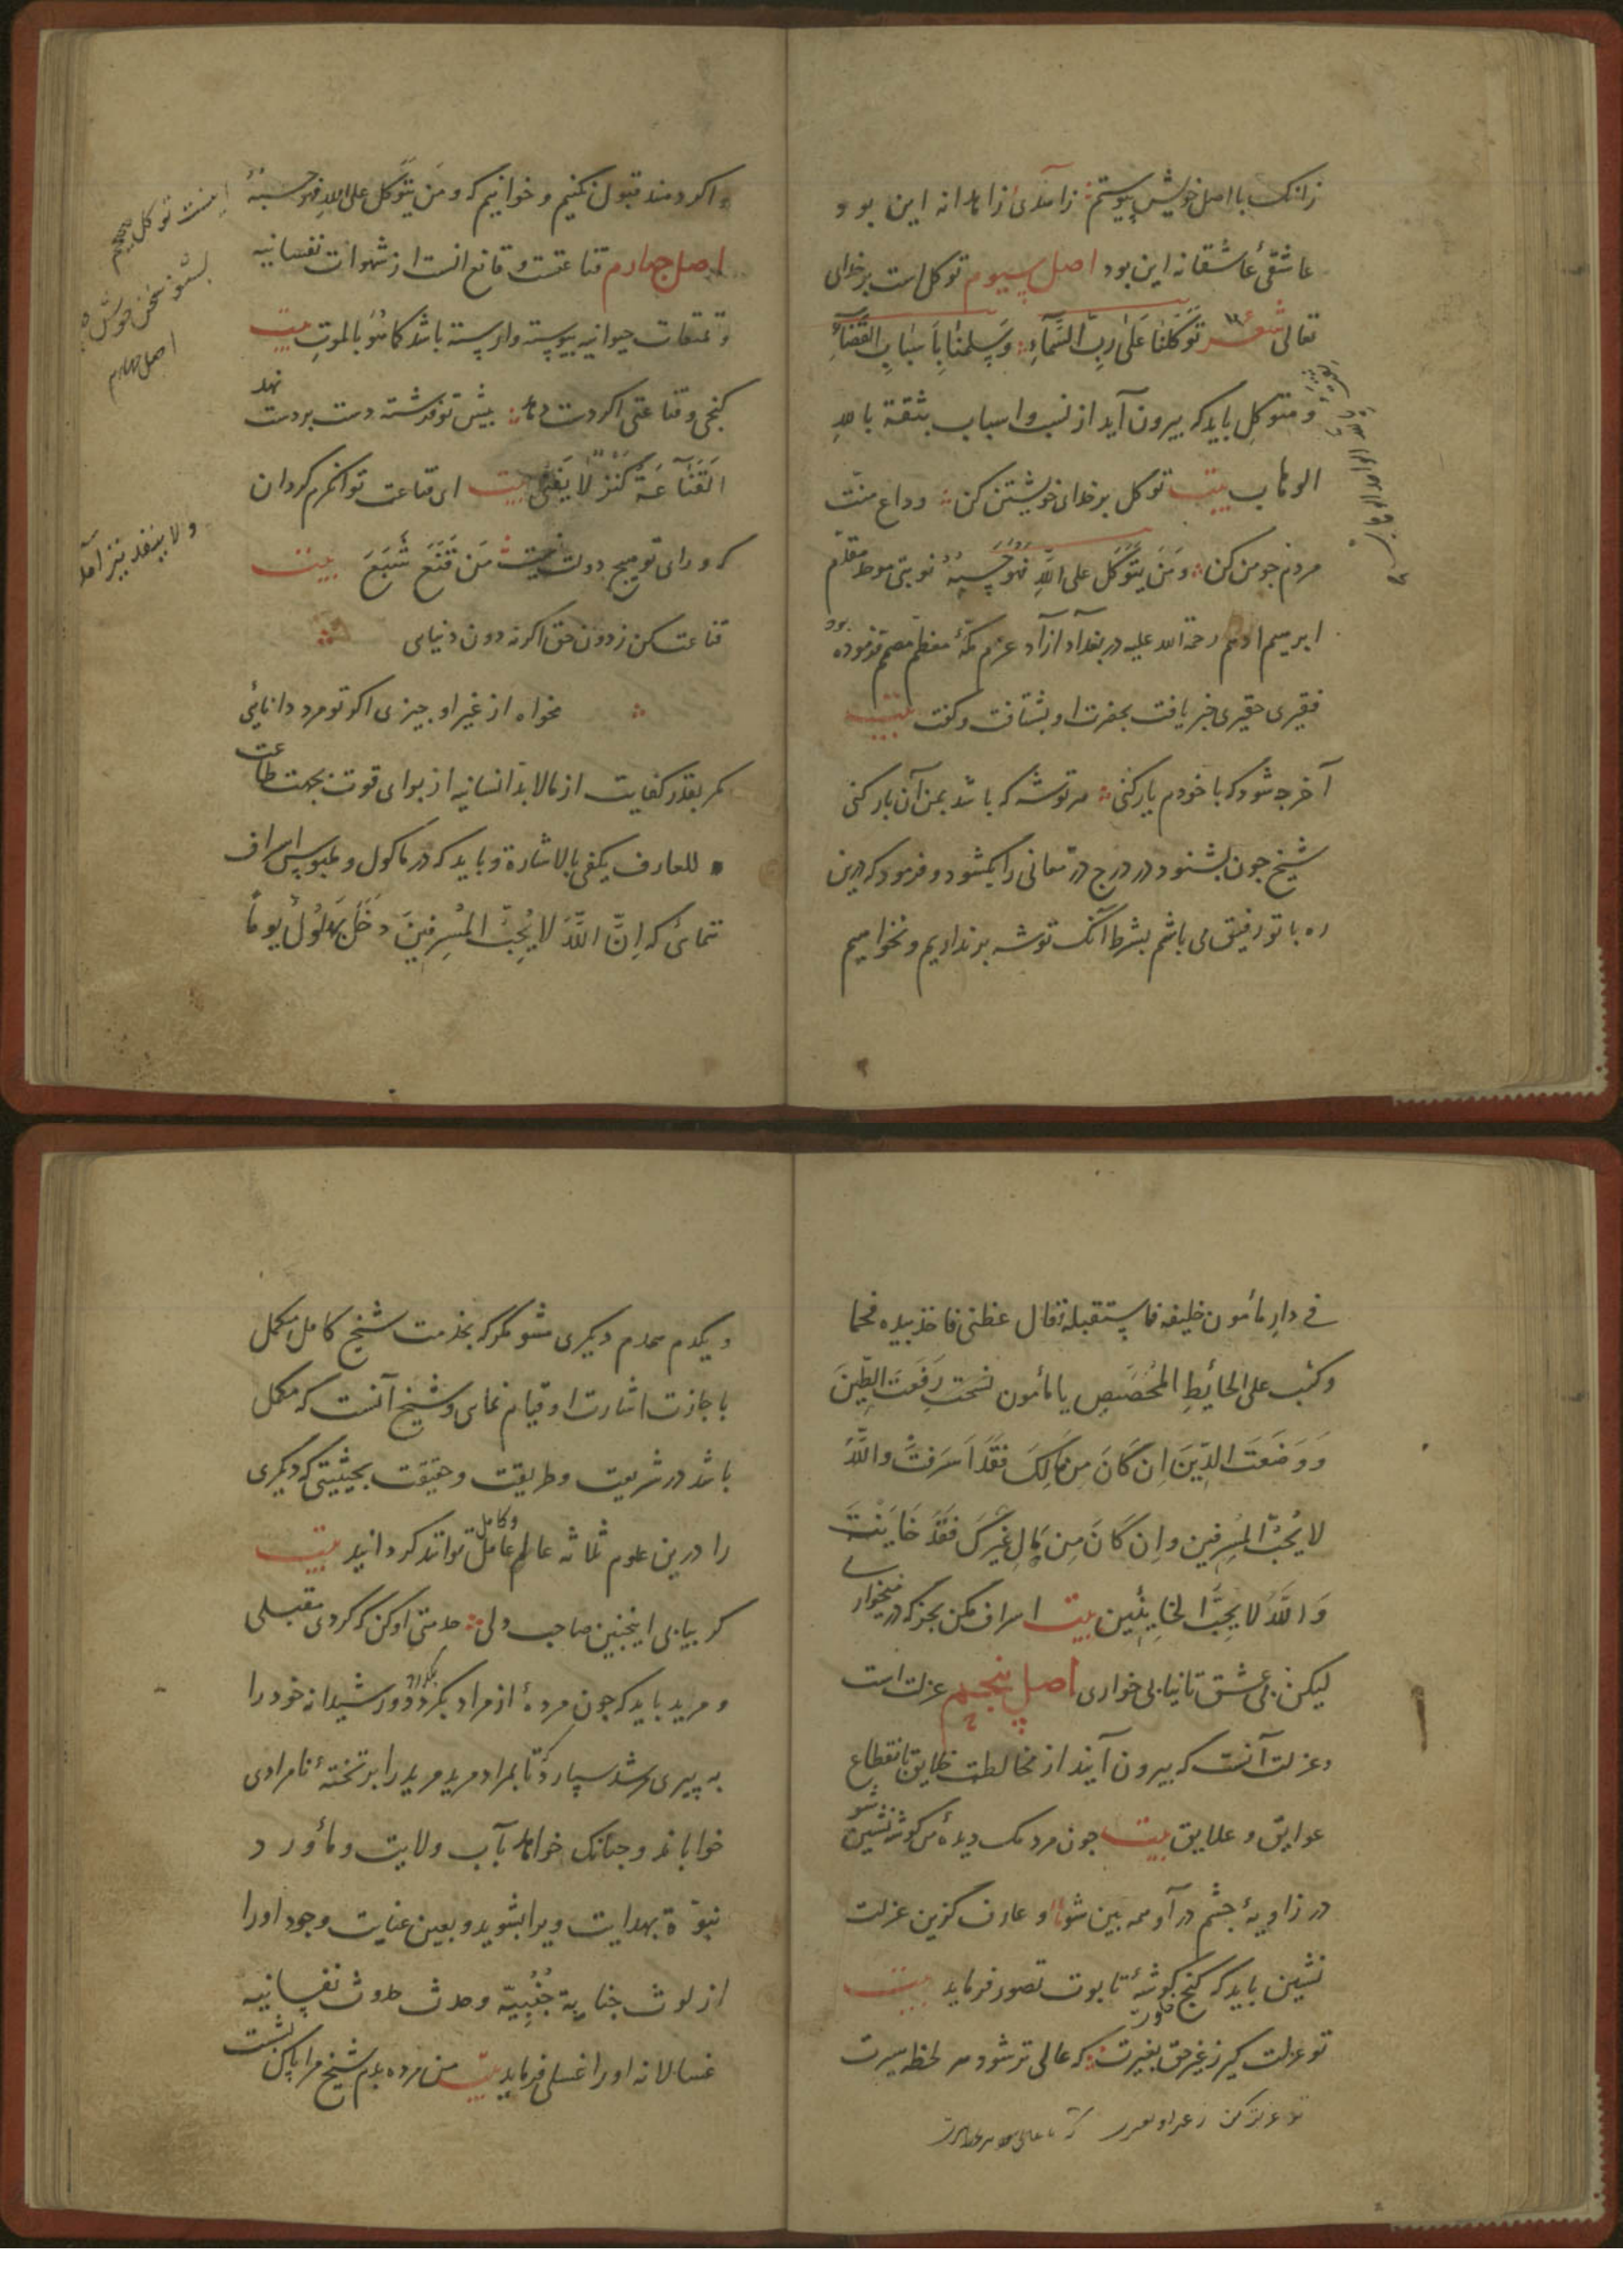 زانک با اصل خویش پیوستم زاهدی زاهدانه این بود و
عاشقیٔ عاشقانه این بود اصل سیوم توکل است بر خدای
تعالی شعر تَوَکَّلنَا عَلٰی رَبِّ السَّمَآءِ وَسَلَّمنَا بِاَسبَابِ القَضَآءِ
و متوکل باید که بیرون آید از نسب و اسباب بثقة بالله
الوهاب بیت توکل بر خدای خویشتن کن وداع منت
مردم جو من کن وَمَن یَتَوَکَّل عَلَی اللَّهِ فَهُوَ حَسبُهُ نوبتی موحد مقدم
ابرهیم ادهم رحمة الله علیه در بغداد آزاد عزم مکهٔ معظم مصمم فرموده بود
فقیری حقیری خبر یافت بحضرت او بشتافت و گفت بیت
آخر جه شود که با خودم یار کنی هر توشه که باشد بمن آن بار کنی
شیخ جون بشنود در درج در معانی را بکشود و فرمود که درین
ره با تو رفیق می باشم بشرط آنک توشه بر نداریم و نخواهیم
و اکر دهند قبول نکنیم و خوانیم که وَمَن یَتَوَکَّل عَلَی اللهِ فَهُوَ حَسبُهُ
اصل جهارم قناعتست و قانع انست از شهوات نفسانیه
و تمتعات حیوانیه پیوسته وارسته باشد کَمَا هُوَ بالموتِ بیت
کنجی و قناعتی اکر دست دهد بیش تو فرشته دست بر دست نهد
اَلقَنَاعَةُ کَنزٌ لَا یَفنٰی بیت ای قناعت توانکرم کردان
که ورای تو هیج دولت نیست مَن قَنَعَ شَبَعَ بیت
قناعت کن ز دون حق اکر نه دون دنیایی
مخواه از غیر او جیزی اکر تو مرد دانایی
مکر بقدر کفایت از مالابد انسانیه از برای قوت بجهت طاعت
للعارف یکفی بالاشارة و باید که در ماکول و ملبوس اسراف
ننمائ که اِنَّ اللَّهَ لَا یُحِبُّ المُسرِفِینَ دَخَلَ بَهلُولُ یوماً
اینست توکل
بشنو سخن خوش
اصل جهارم
ولا ینفد نیز آمد
فی دار مأمون خلیفه فاستقبله فقال عظنی فاخذ بیده فحما
وکتب علی الحائِطِ المُخَصَّصِ یا مأمون نسحت رَفَعتَ الطِّینَ
وَوَضَعتَ الدِّینَ اِن کَانَ مِن مَالِکَ فَقَد اَسرَفتَ وَاللَّهُ
لَا یُحِبُّ المُسرِفِین واِن کَانَ مِن مَالِ غَیرِکَ فَقَد خَایَنتَ
وَاللَّهُ لَا یُحِبُّ الخَایِنِین بیت اسراف مکن بجز که در میخواری
لیکن می عشق تا نیابی خواری اصل پنجم عزلت است
و عزلت آنست که بیرون آیند از مخالطت خلایق تا انقطاع
عوایق و علایق بیت جون مردمک دیدهٔ من کوشه نشین شو
در زاویهٔ جشم در آ و همه بین شو و عارف کزین عزلت
نشین باید که کنج کوشهٔ تابوت تصور فرماید بیت
تو عزلت کیر ز غیر حق بغیرت که عالی تر شود هر لحظه سیرت
و یکدم همدم دیکری مشو مکر که بخدمت شیخ کامل مکمل
باجازت اشارت او قیام نمای و شیخ آنست که مکمل
باشد در شریعت و طریقت و حقیقت بحیثیتی که دیکری
را درین علوم ثلاثه عالم عامل و کامل تواند کردانید بیت
کر بیابی اینجنین صاحب دلی خدمتی او کن که کردی مقبلی
و مرید باید که جون مردهٔ از مراد بکردد و رشیدانه خود را
به پیری مرشد سپارد تا بمراد مرید مرید را بر تختهٔ نامرادی
خواباند و جنانک خواهد بآب ولایت و مأورد
نبوّة بهدایت ویرا بشوید و بعین عنایت وجود اورا
از لوث جنابة جُنُبِیّه و حدث حدوث نفسانیه
غسالانه اورا غسلی فرماید بیت من مرده بدم شیخ مرا پاک بشست